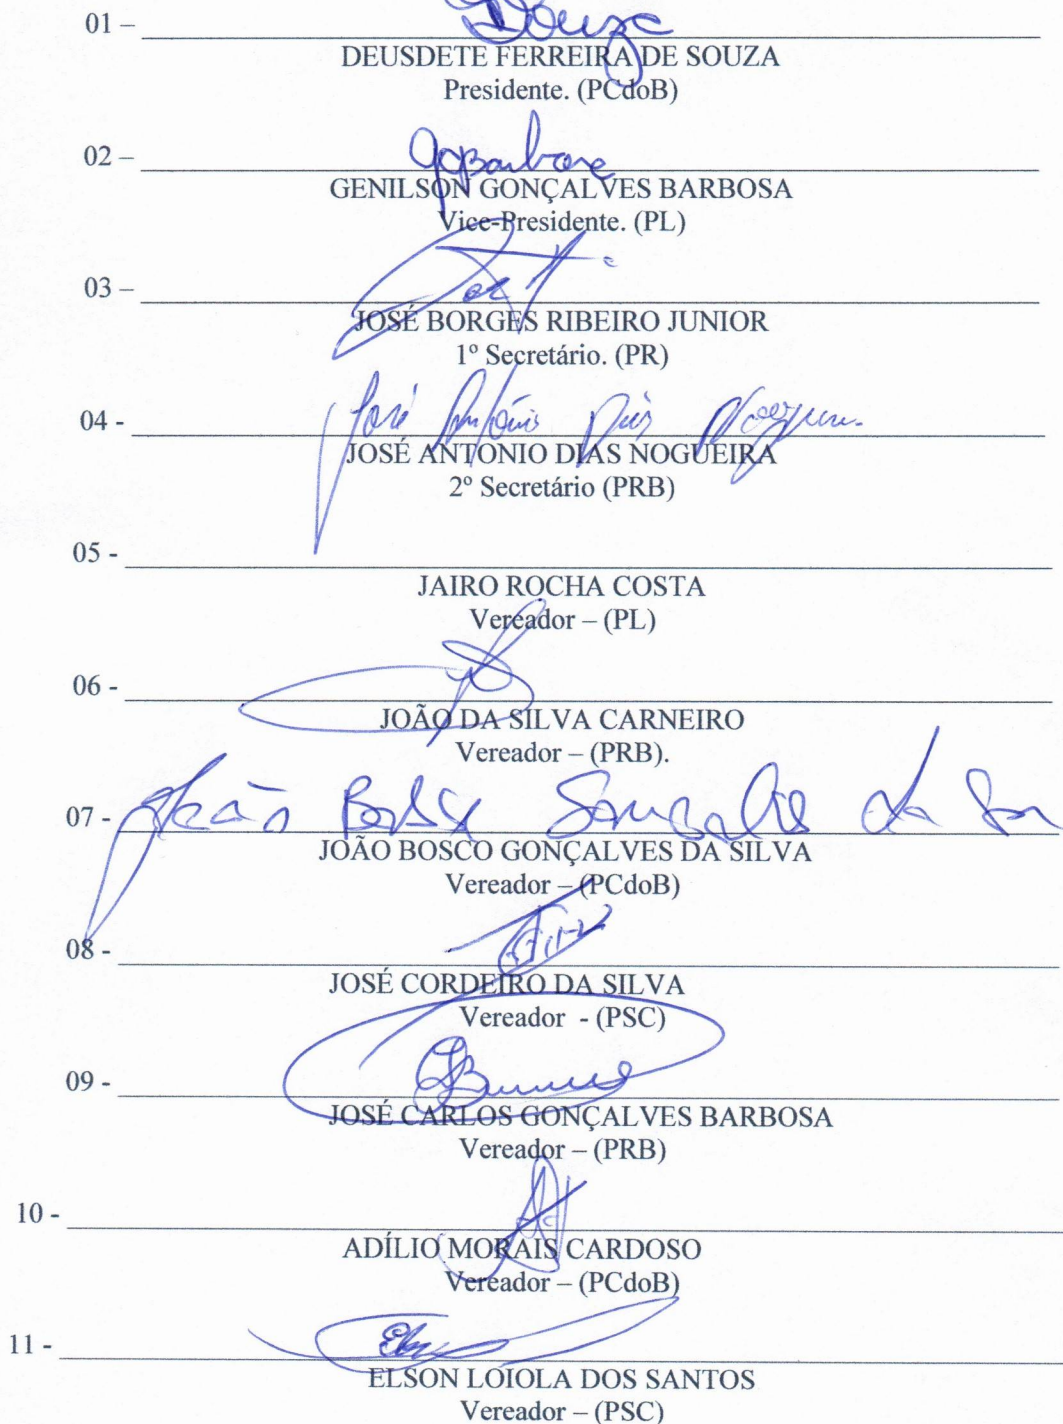 Souza
01 –
DEUSDETE FERREIRA DE SOUZA
Presidente. (PCdoB)
GGBarbosa
02 –
GENILSON GONÇALVES BARBOSA
Vice-Presidente. (PL)
03 –
JOSÉ BORGES RIBEIRO JUNIOR
1º Secretário. (PR)
José Antônio Dias Nogueira
04 -
JOSÉ ANTONIO DIAS NOGUEIRA
2º Secretário (PRB)
05 -
JAIRO ROCHA COSTA
Vereador – (PL)
06 -
JOÃO DA SILVA CARNEIRO
Vereador – (PRB).
João Bosco Gonçalves da
07 -
JOÃO BOSCO GONÇALVES DA SILVA
Vereador – (PCdoB)
08 -
JOSÉ CORDEIRO DA SILVA
Vereador - (PSC)
09 -
JOSÉ CARLOS GONÇALVES BARBOSA
Vereador – (PRB)
10 -
ADÍLIO MORAIS CARDOSO
Vereador – (PCdoB)
11 -
ELSON LOIOLA DOS SANTOS
Vereador – (PSC)